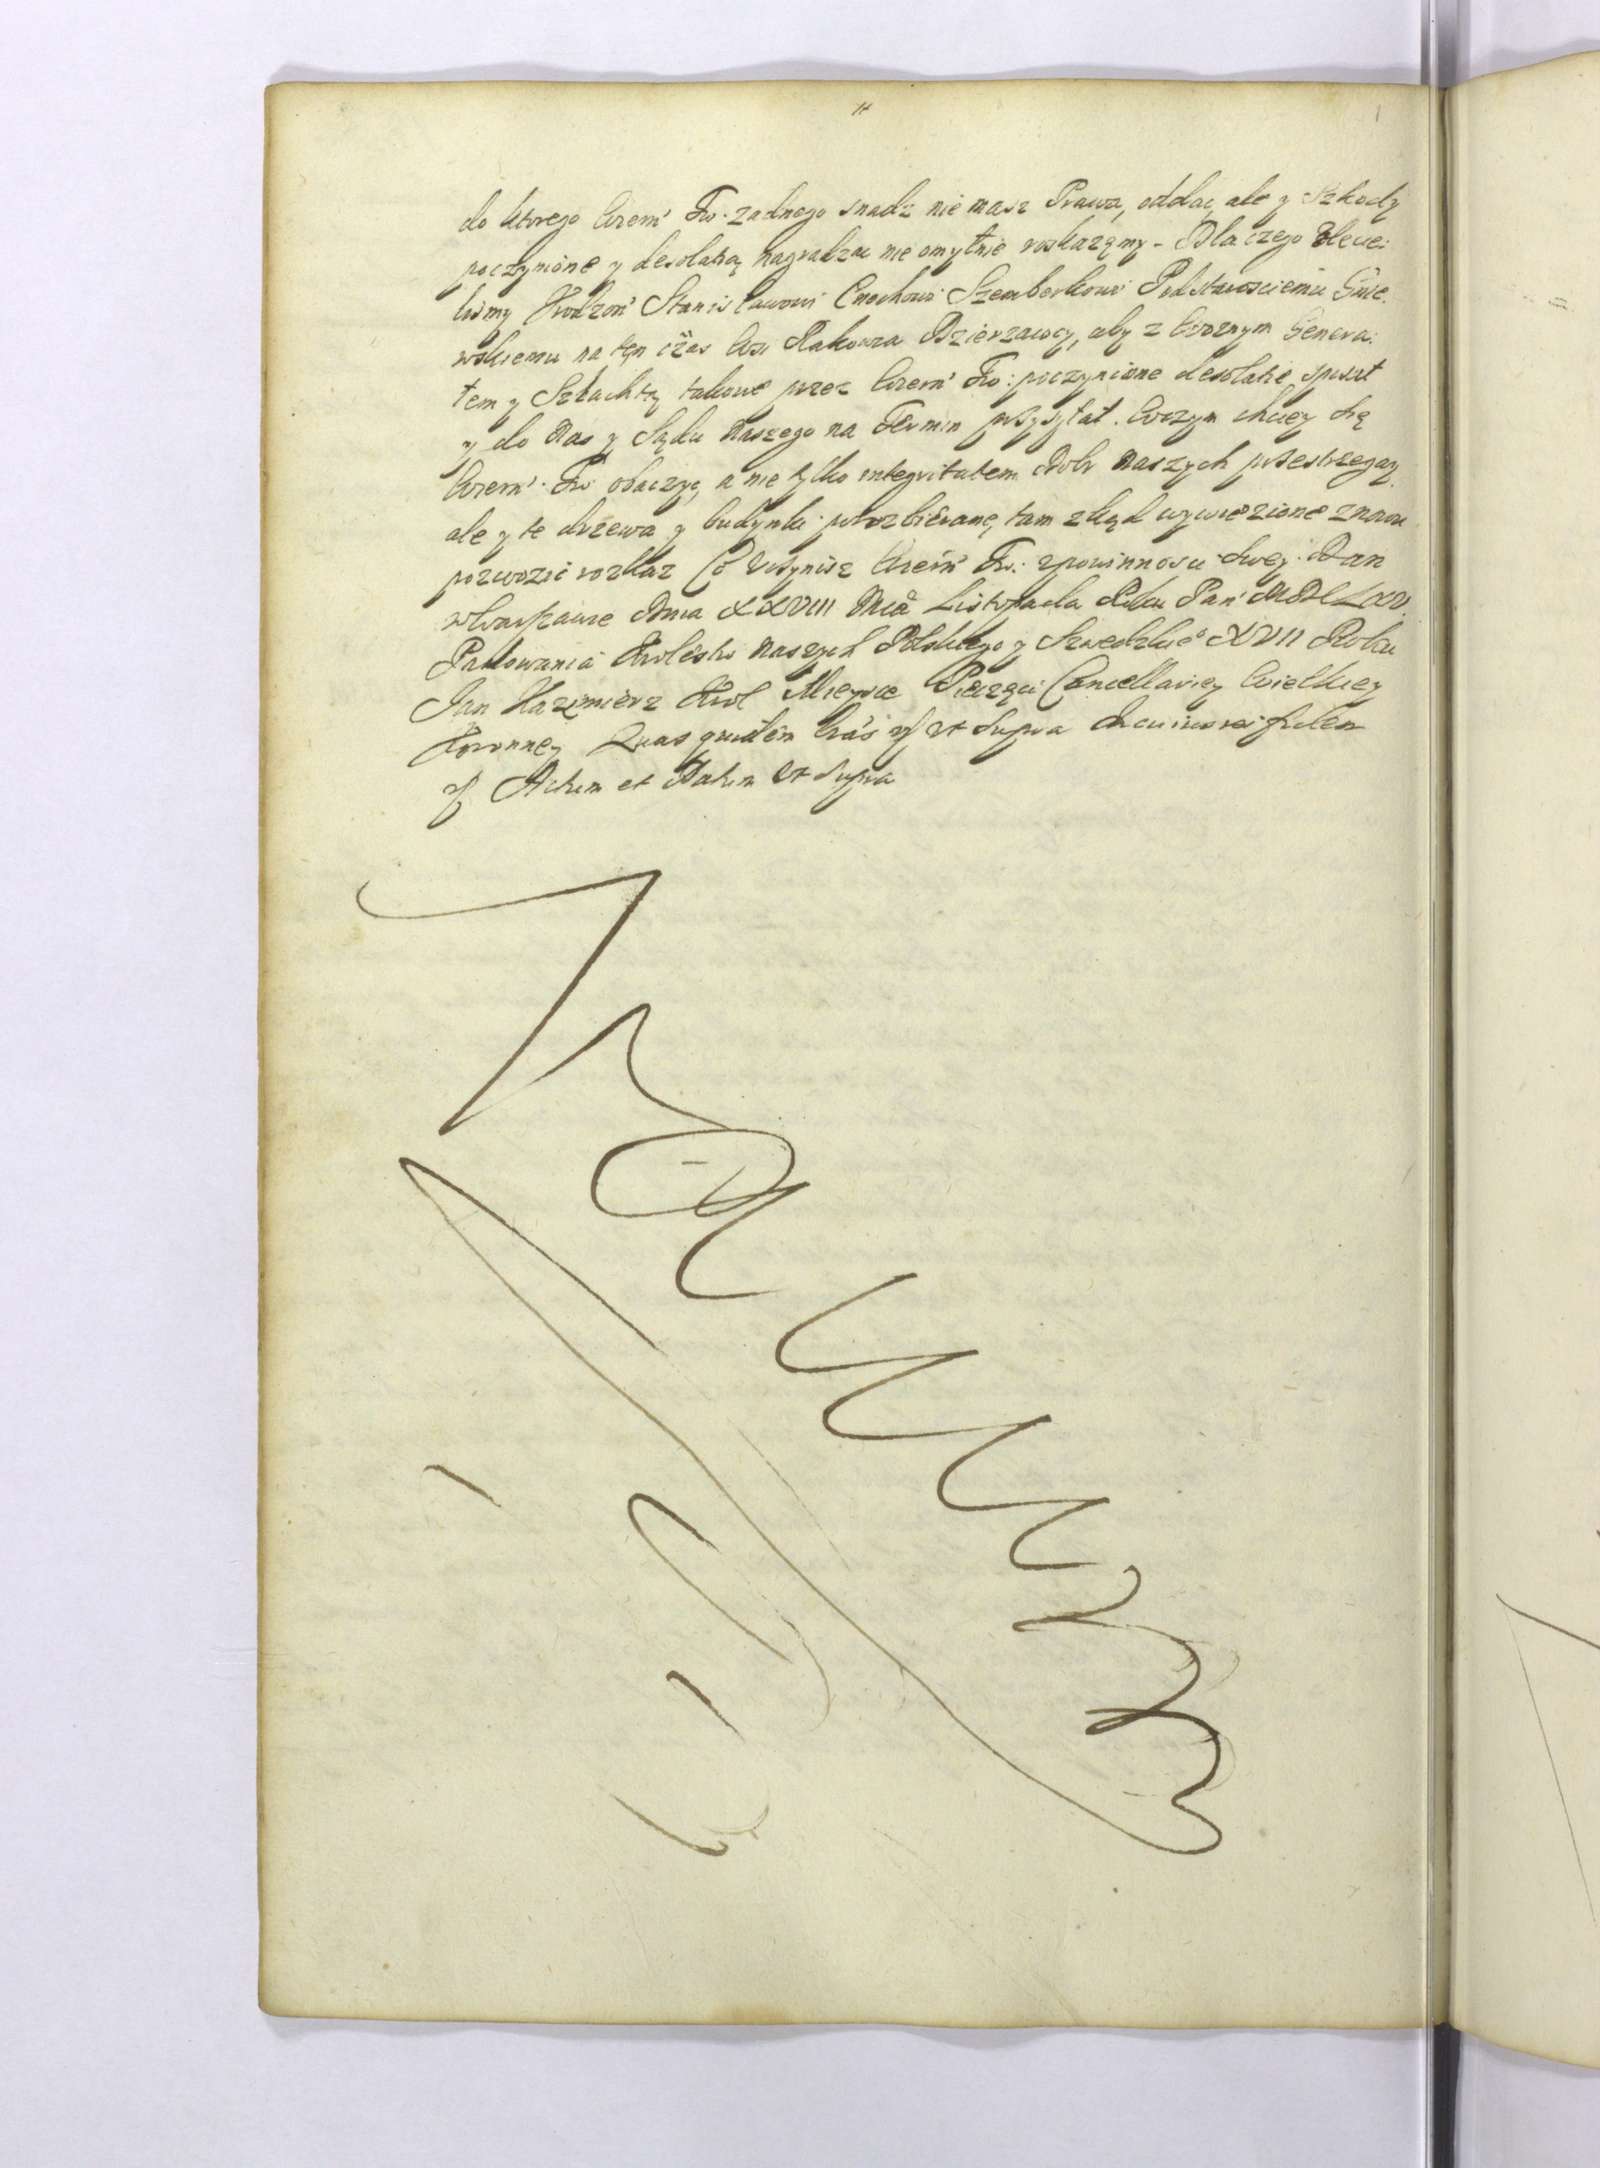 do ktorego Wiernć Tw: zadnego snadz nie masz Prawa, oddac, ale y Szkody
poczynione y desolatią nagradzac nie omylnie roskazęmy - Dla czego Zlecie:
lismy Urodzoń Stanisławowi Czechowi Szemberkowi Podstarosciemu Gnie:
wskiemu na tęn czas Wsi Rakowca Dzierzawcy, aby z Woznym Genera:
łem y Szlachtą takowe przez Wiernć Tw: poczynione desolatie spisał
y do nas y Sądu naszego na Termin przysyłał. Wczym chciey Się
Wiernć Tw: obaczyc, a nie tylko integritatem Dobr naszych przestrzegay,
ale y te drzewa y budynki porozbieranę, tam zkąd wywiezione znowu
pozwozic roskaz Co Uczynisz Wiernć Tw: zpowinnosci Swey. Dan
wWarszawie Dnia XXVIII Mcã Listopada Roku Pań
Panowania Krolestw naszych Polskiego y Szwedzkieº XVII Roku
Jan Kazimierz Krol Mieysce Pieczęci Cancellariey Wielkiey
Koronney Quas quidem Lrãs Ut Supra
Actum et Datum Ut Supra